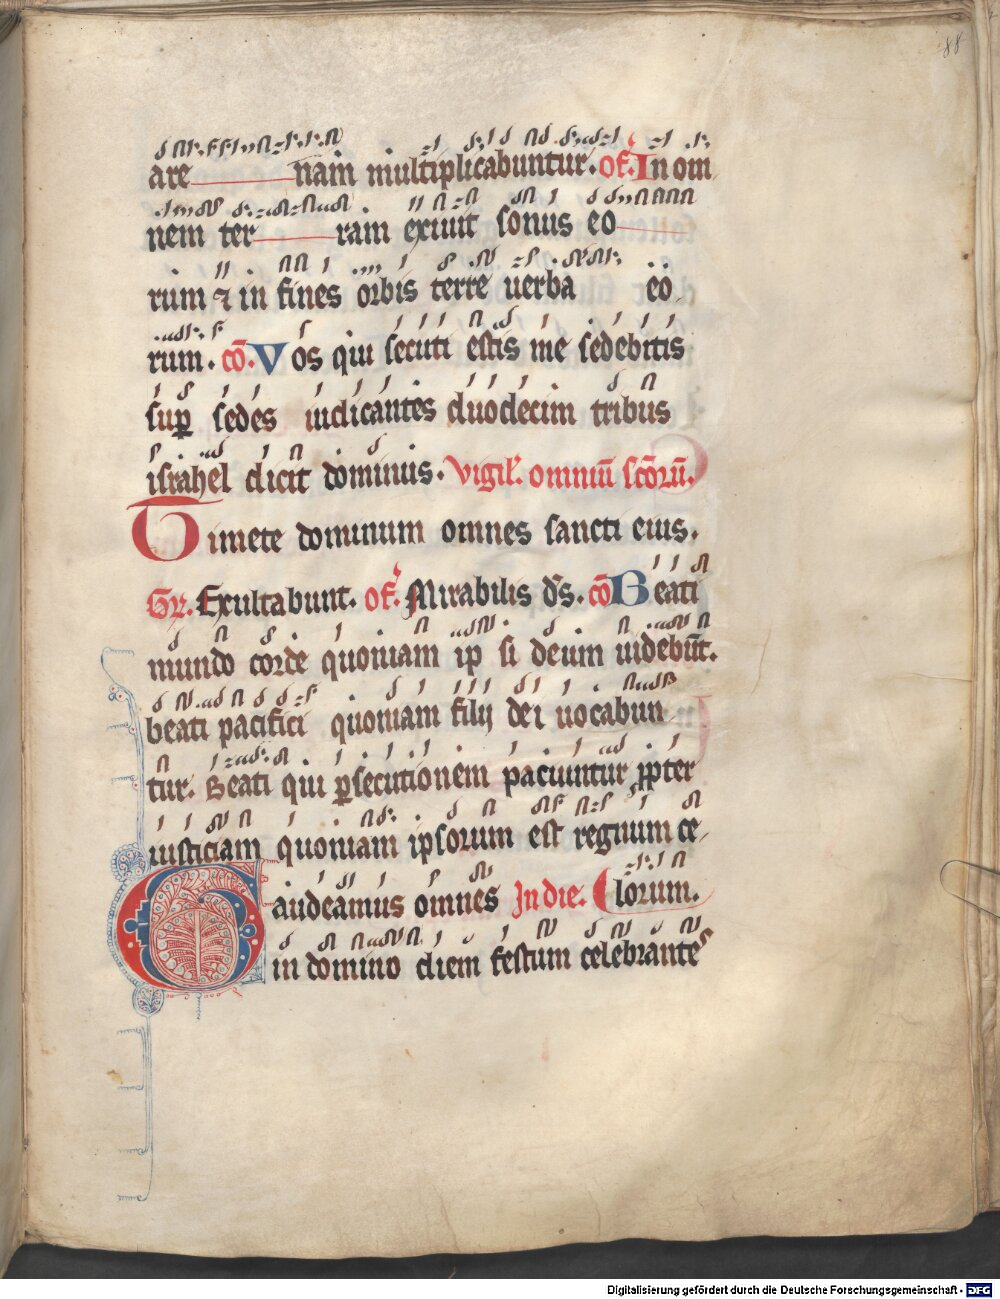 88
are nam multiplicabuntur. of. In om
nem ter ram exiuit sonus eo
rum ⁊ in fines orbis terre uerba eo
rum. cō. Vos qui secuti estis me sedebitis
suꝑ sedes iudicantes duodecim tribus
israhel dicit dominus. Vigil. omniū sc̄orū.
Timete dominum omnes sancti eius.
Gr. Exultabunt. of. Mirabilis d̄s. cō Beati
mundo corde quoniam ip̄ si deum uideb̄unt.
beati pacifici quoniam filij dei uocabun
tur. Beati qui ꝑsecutionem paciuntur ꝓpter
iusticiam quoniam ipsorum est regnum ce
Gaudeamus omnes In die. lorum.
in domino diem festum celebrantes
Digitalisierung gefördert durch die Deutsche Forschungsgemeinschaft - DFG